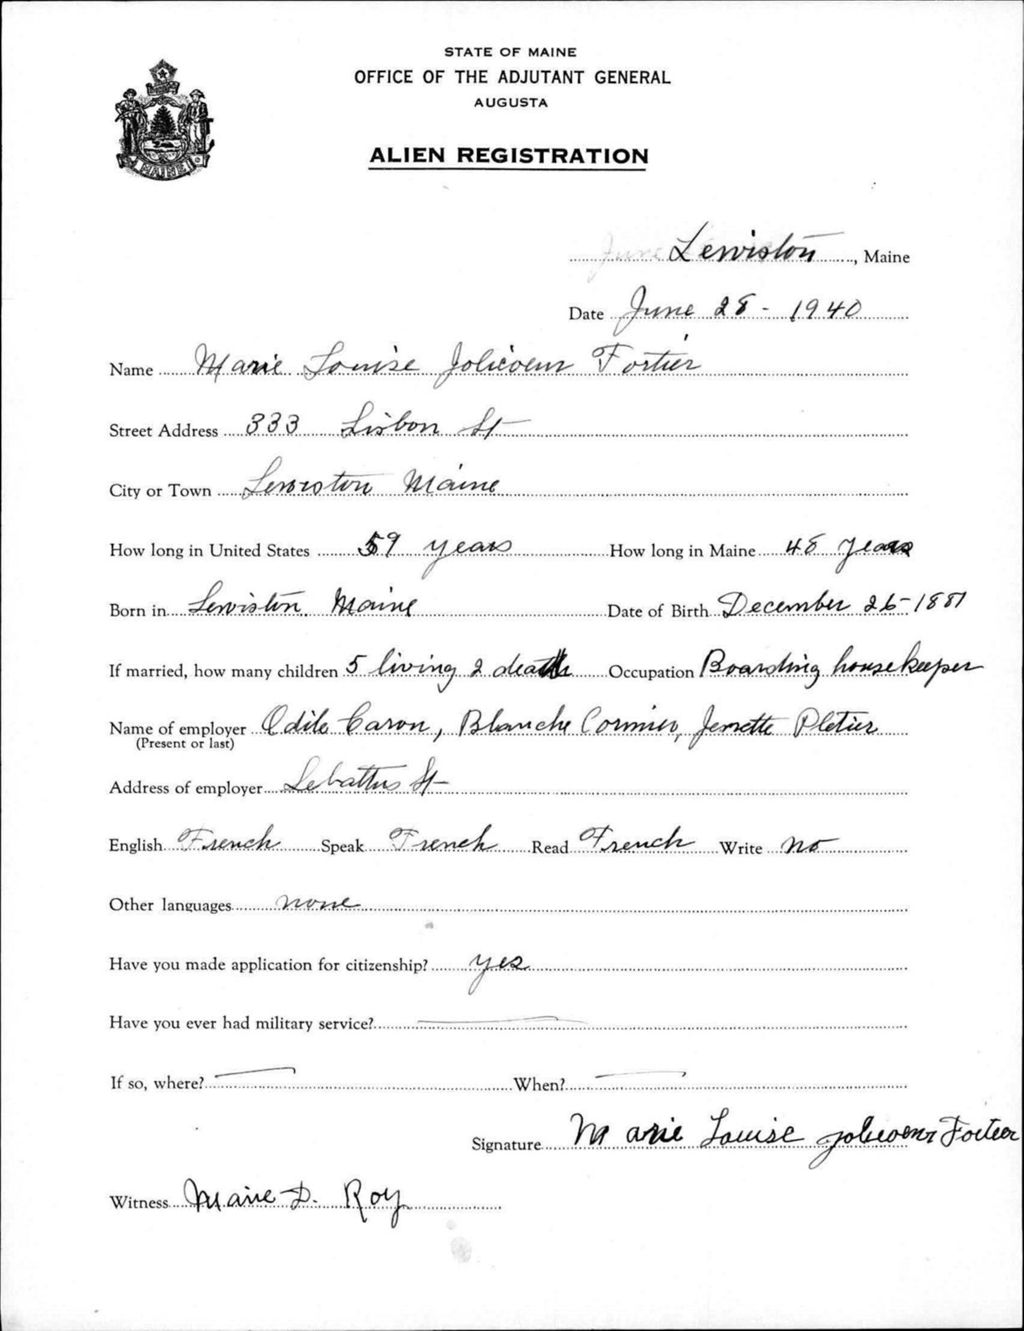 STATE OF MAINE
OFFICE OF THE ADJUTANT GENERAL
AUGUSTA
ALIEN REGISTRATION
MAINE
June Lewiston, Maine
Date June 28 - 1940
Name Marie Louise Jolicoeur Fortier
Street Address 333 Lisbon St
City or Town Lewiston Maine
How long in United States 59 years How long in Maine 48 years
Born in Lewiston Maine Date of Birth December 26 - 1881
If married, how many children 5 living 2 deaths Occupation Boarding housekeeper
Name of employer Odile Caron, Blanche Cormier, Jenette Pletier
(Present or last)
Address of employer Sebattus St
English French Speak French Read French Write no
Other languages none
Have you made application for citizenship? yes
Have you ever had military service?
If so, where? When?
Signature Marie Louise Jolicoeur Fortier
Witness Marie D. Roy